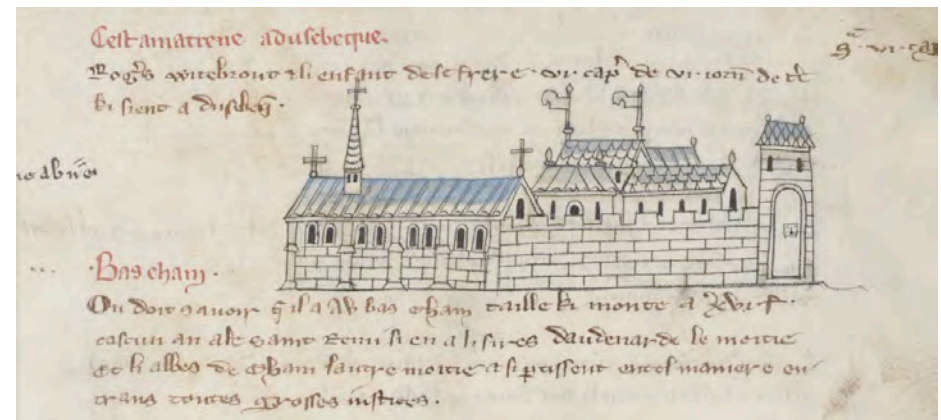 Cest amatrene adusebeque.
Rog's Wttebrout & li enfant de se frere . vi . cap' de vi . iorn' de t're
ki sient a dusebeq'.
.Bas eham.
On doit sauoir q' il a Au bas eham taille ki monte a xvi f.
cascun an ale saint Remi si en a li sires daudenarde le moitie
Et li abbes de Eham lautre moitie & si p'tissent en tel maniere en
trans toutes grosses iustices.